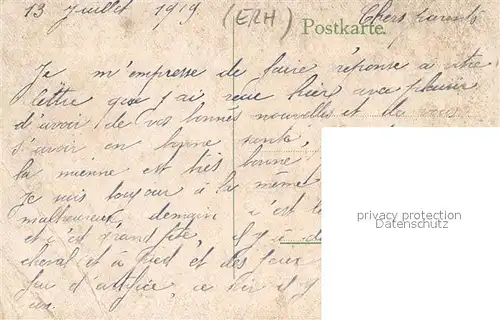 13 Juillet 1919 (ERH) Postkarte. Chers parents
Je m'empresse de faire réponse a votre
lettre que j'ai reçue hier avec plaisir
d'avoir de vos bonnes nouvelles et de vous
s'avoir en bonne santé,
la mienne est très bonne
je suis toujour à la même
malheureux demain c'est le
et c'est grand fête, il y a
cheval et a pied et des feux
d'artifice, ce soir il y
privacy protection
Datenschutz